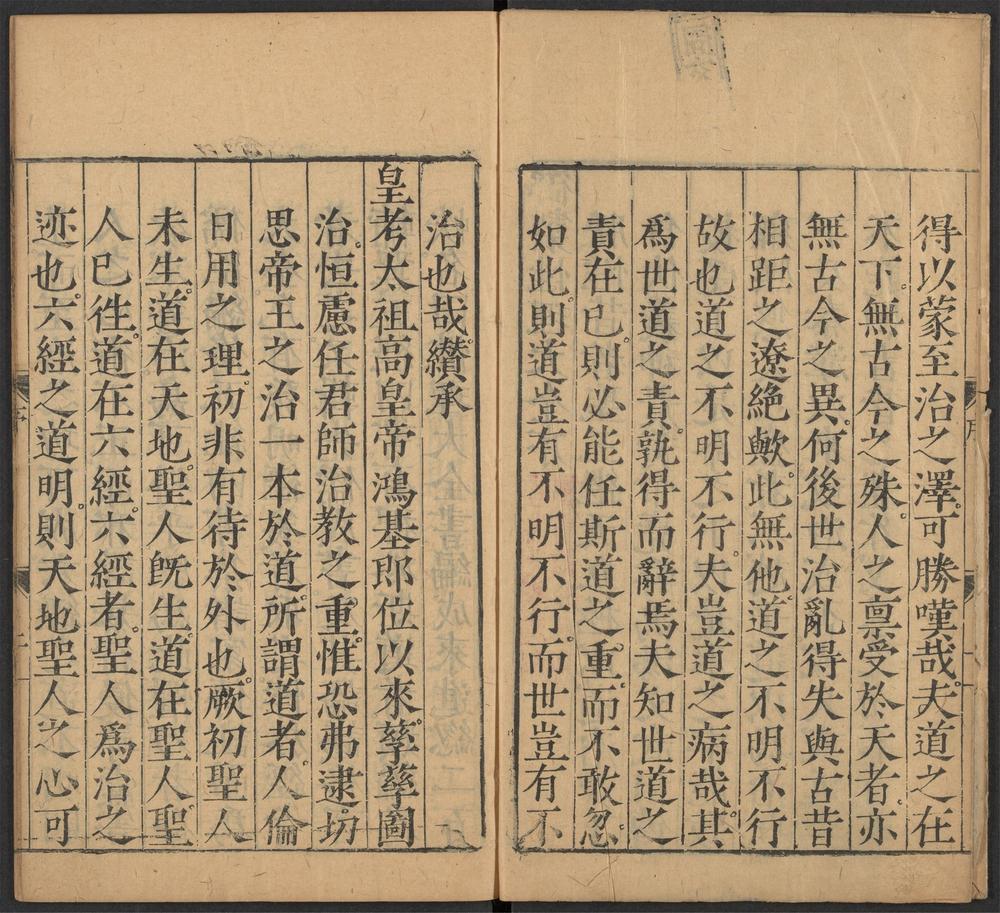 得以蒙至治之澤。可勝嘆哉。夫道之在
天下。無古今之殊。人之禀受於天者。亦
無古今之異。何後世治亂得失與古昔
相距之遼絶歟。此無他。道之不明不行
故也。道之不明不行。夫豈道之病哉。其
爲世道之責。孰得而辭焉。夫知世道之
責在已。則必能任斯道之重。而不敢忽。
如此則道豈有不明不行。而世豈有不
治也哉。纉承
皇考太祖高皇帝鴻基。即位以來。孳孳圖
治。恒慮任君師治教之重。惟恐弗逮。切
思帝王之治。一本於道。所謂道者。人倫
日用之理。初非有待於外也。厥初聖人
未生。道在天地。聖人旣生。道在聖人。聖
人已徃。道在六經。六經者。聖人爲治之
迹也。六經之道明。則天地聖人之心可
序